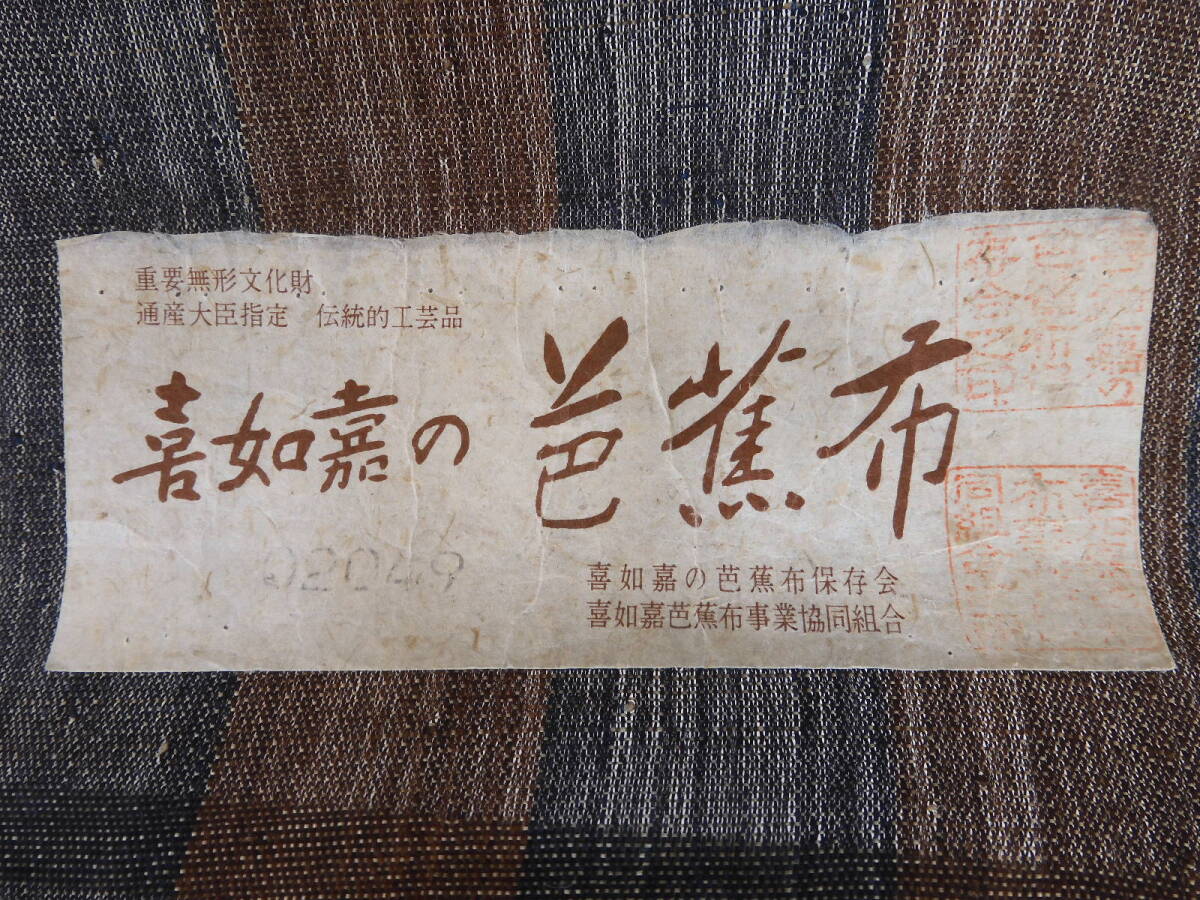 重要無形文化財
通産大臣指定　伝統的工芸品
喜如嘉の芭蕉布
02049
喜如嘉の芭蕉布保存会
喜如嘉芭蕉布事業協同組合
存会之印